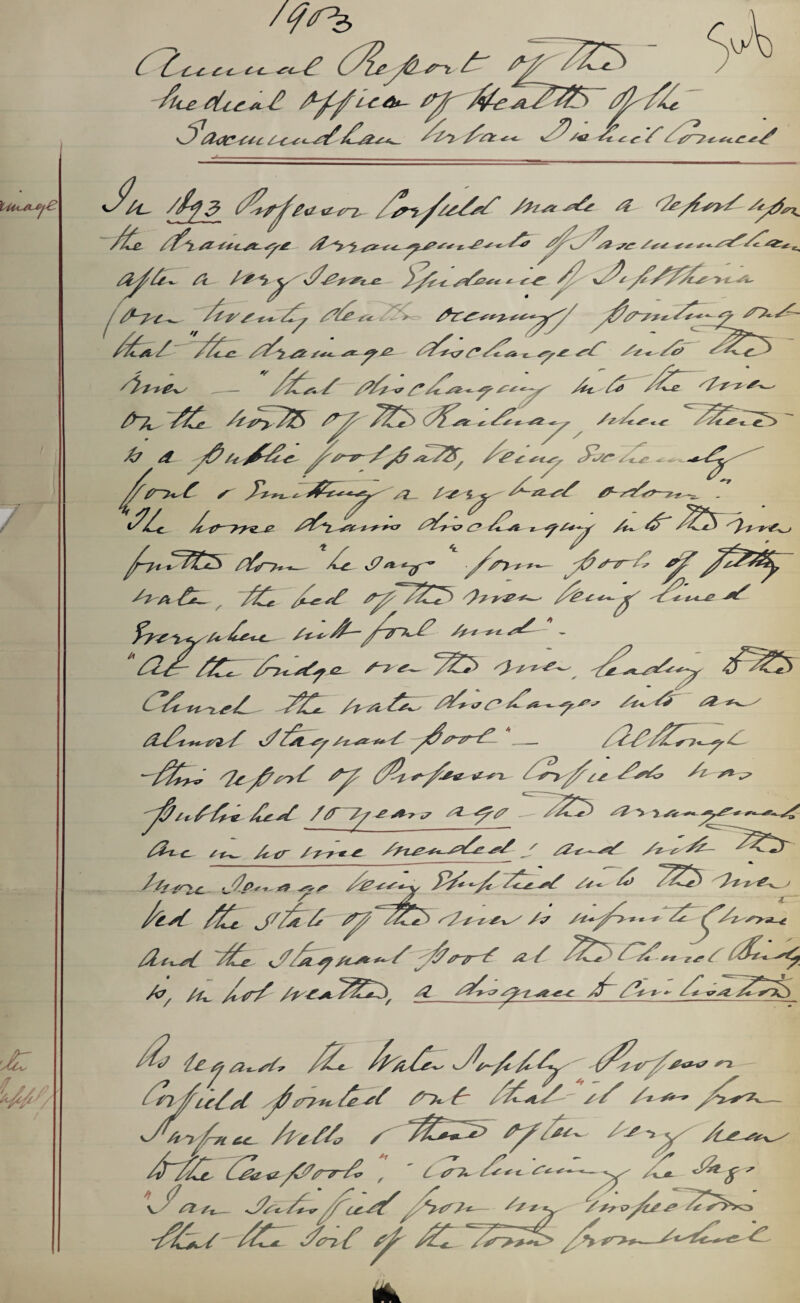 1903
Sub
Annual Report of The
Medical Officer of Health Of the
Saxmundham Urban District Council
In 1893 Professor Corfield made a report upon
the drainage arrangements of Saxmundham
after a very severe Epidemic of Diphtheria
(some twenty deaths occurring) pointing out
that "the drainage discharged into the
river — "that discharging into the river
on the north of the Railway where there
is a public footpath, being exceedingly
foul & emitting a very bad odour."
"The house drains discharging into the river
further down" he says "form pools of filthy
water, the bed of the river being lined
everywhere with foul mud".
"At the bridge over the river, leading to the
Church the water discharges into an
almost stagnant pool" — Although
this report of Professor Corfields was
published 10 years ago — the arrangements
are in no wise mended! and with the
house sewage being emptied into the river
bed the state of the river is infinitely worse
and the stagnant pool at the Church Bridge
is, in hot weather, a disgrace to Civilisation.
As regards the Water Supply Professor
Corfield pointed out that "it was from
Surface Wells & these often very near
to the Cesspools", "Continuing he says
"I am satisfied from my inspections
that the soil of the town from which